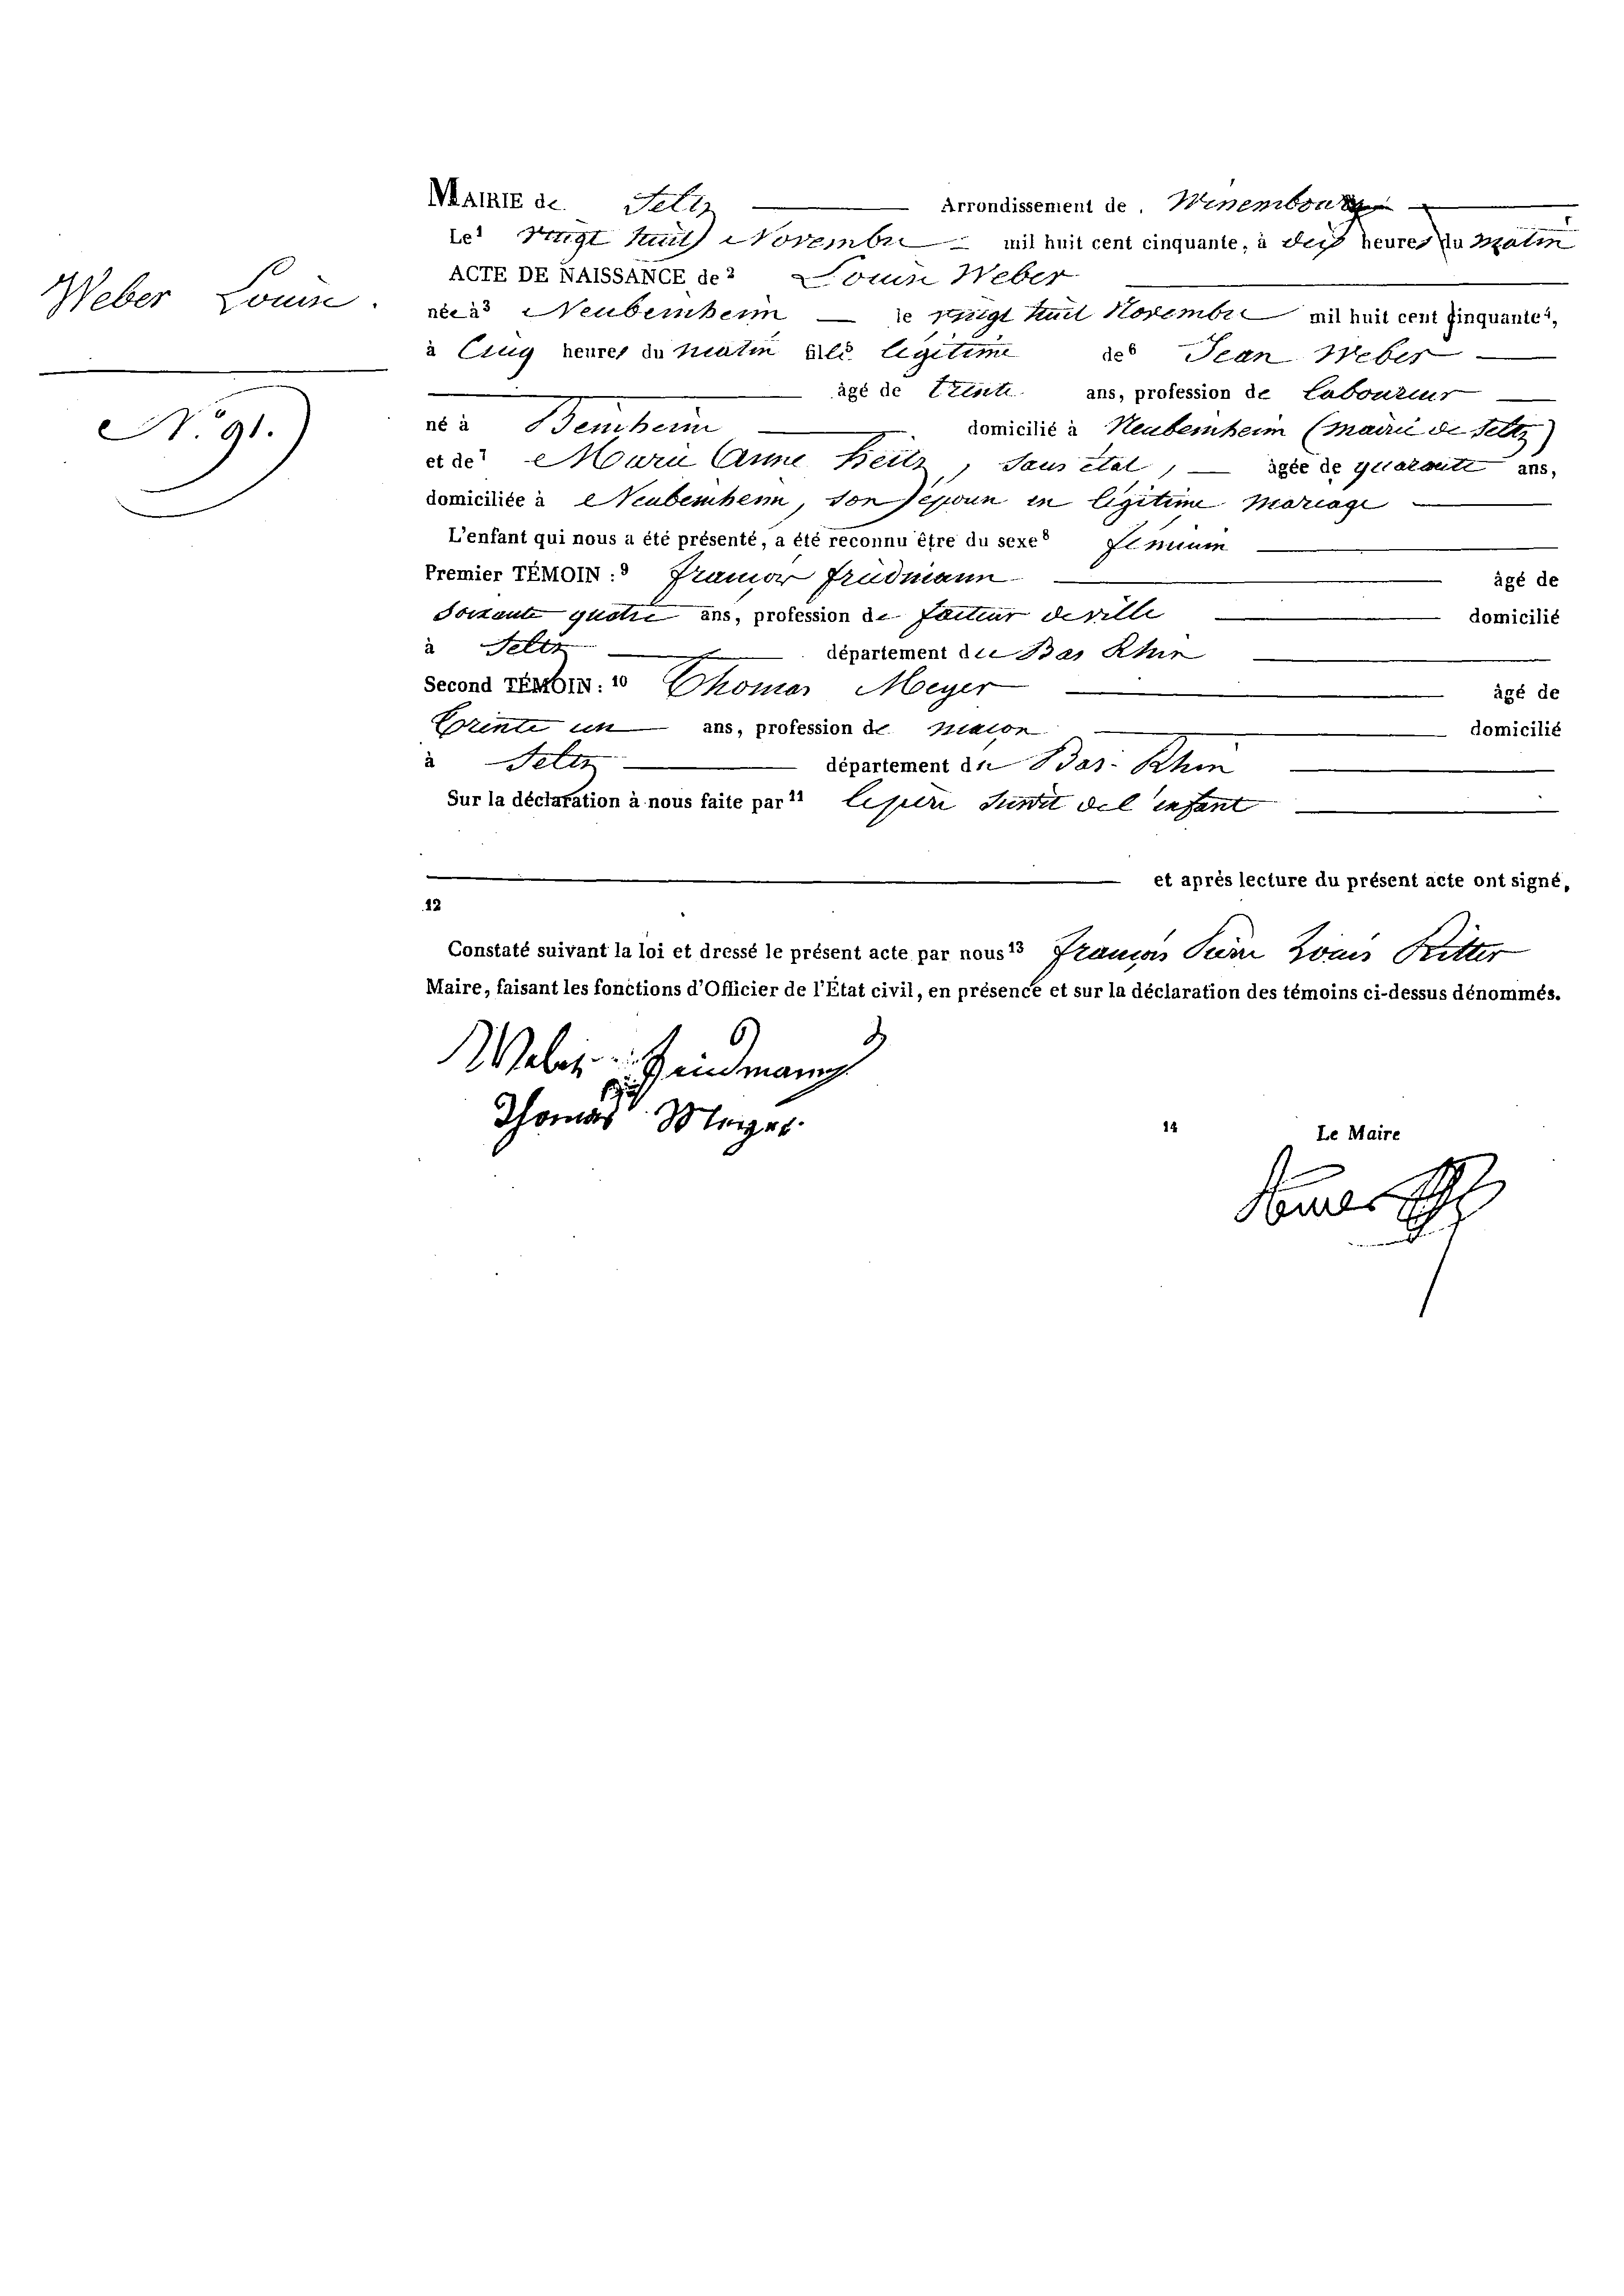 Weber Louise.
N.° 91.
MAIRIE de Seltz Arrondissement de Wissembourg
Le¹ vingt huit Novembre mil huit cent cinquante, à dix heures du Matin
ACTE DE NAISSANCE de² Louise Weber
née à³ Neubeinheim le vingt huit Novembre mil huit cent cinquante⁴,
à Cinq heures du matin fille légitime de⁶ Jean Weber
âgé de trente ans, profession de Laboureur
né à Beinheim domicilié à Neubeinheim (Mairie de Seltz)
et de⁷ Marie Anne Heitz, Sans état, âgée de quarante ans,
domiciliée à Neubeinheim, son épouse en légitime mariage
L'enfant qui nous a été présenté, a été reconnu être du sexe⁸ féminin
Premier TÉMOIN :⁹ François Friedmann âgé de
Soixante quatre ans, profession de facteur de ville domicilié
à Seltz département du Bas Rhin
Second TÉMOIN : ¹⁰ Thomas Meyer âgé de
Trente un ans, profession de maçon domicilié
à Seltz département du Bas-Rhin
Sur la déclaration à nous faite par¹¹ le père susdit de l'enfant
et après lecture du présent acte ont signé,
12
Constaté suivant la loi et dressé le présent acte par nous¹³ François Pierre Louis Ritter
Maire, faisant les fonctions d'Officier de l'État civil, en présence et sur la déclaration des témoins ci-dessus dénommés.
Weber Friedmann
Thomas Meyer.
14 Le Maire